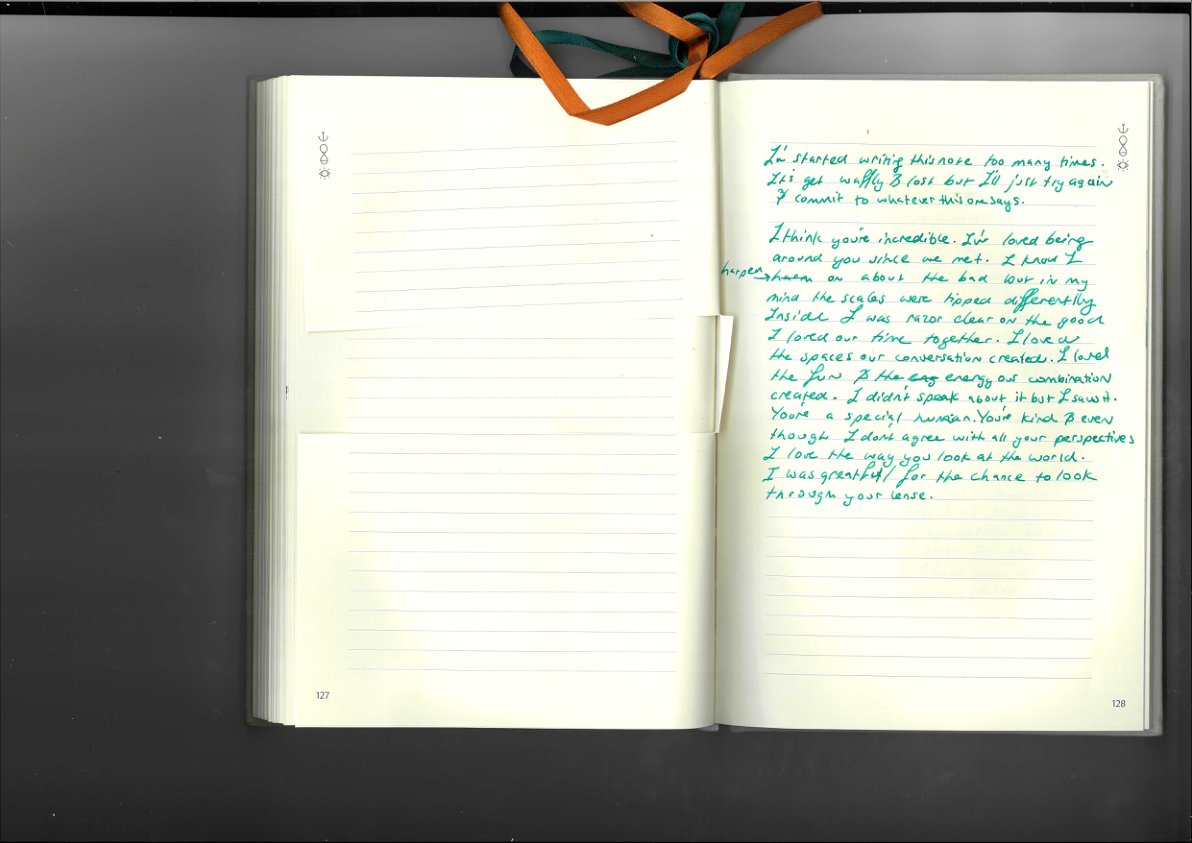 I've started writing this note too many times.
It's get waffly & lost but I'll just try again
& commit to whatever this one says.
I think you're incredible. I've loved being
around you since we met. I know I
harpen
on about the bad but in my
mind the scales were tipped differently
Inside I was razor clear on the good
I loved our time together. I loved
the spaces our conversation created. I loved
the fun & the eng energy our combination
created. I didn't speak about it but I saw it.
You're a special human. You're kind & even
though I don't agree with all your perspectives
I love the way you look at the world.
I was greatful for the chance to look
through your lense.
127
128